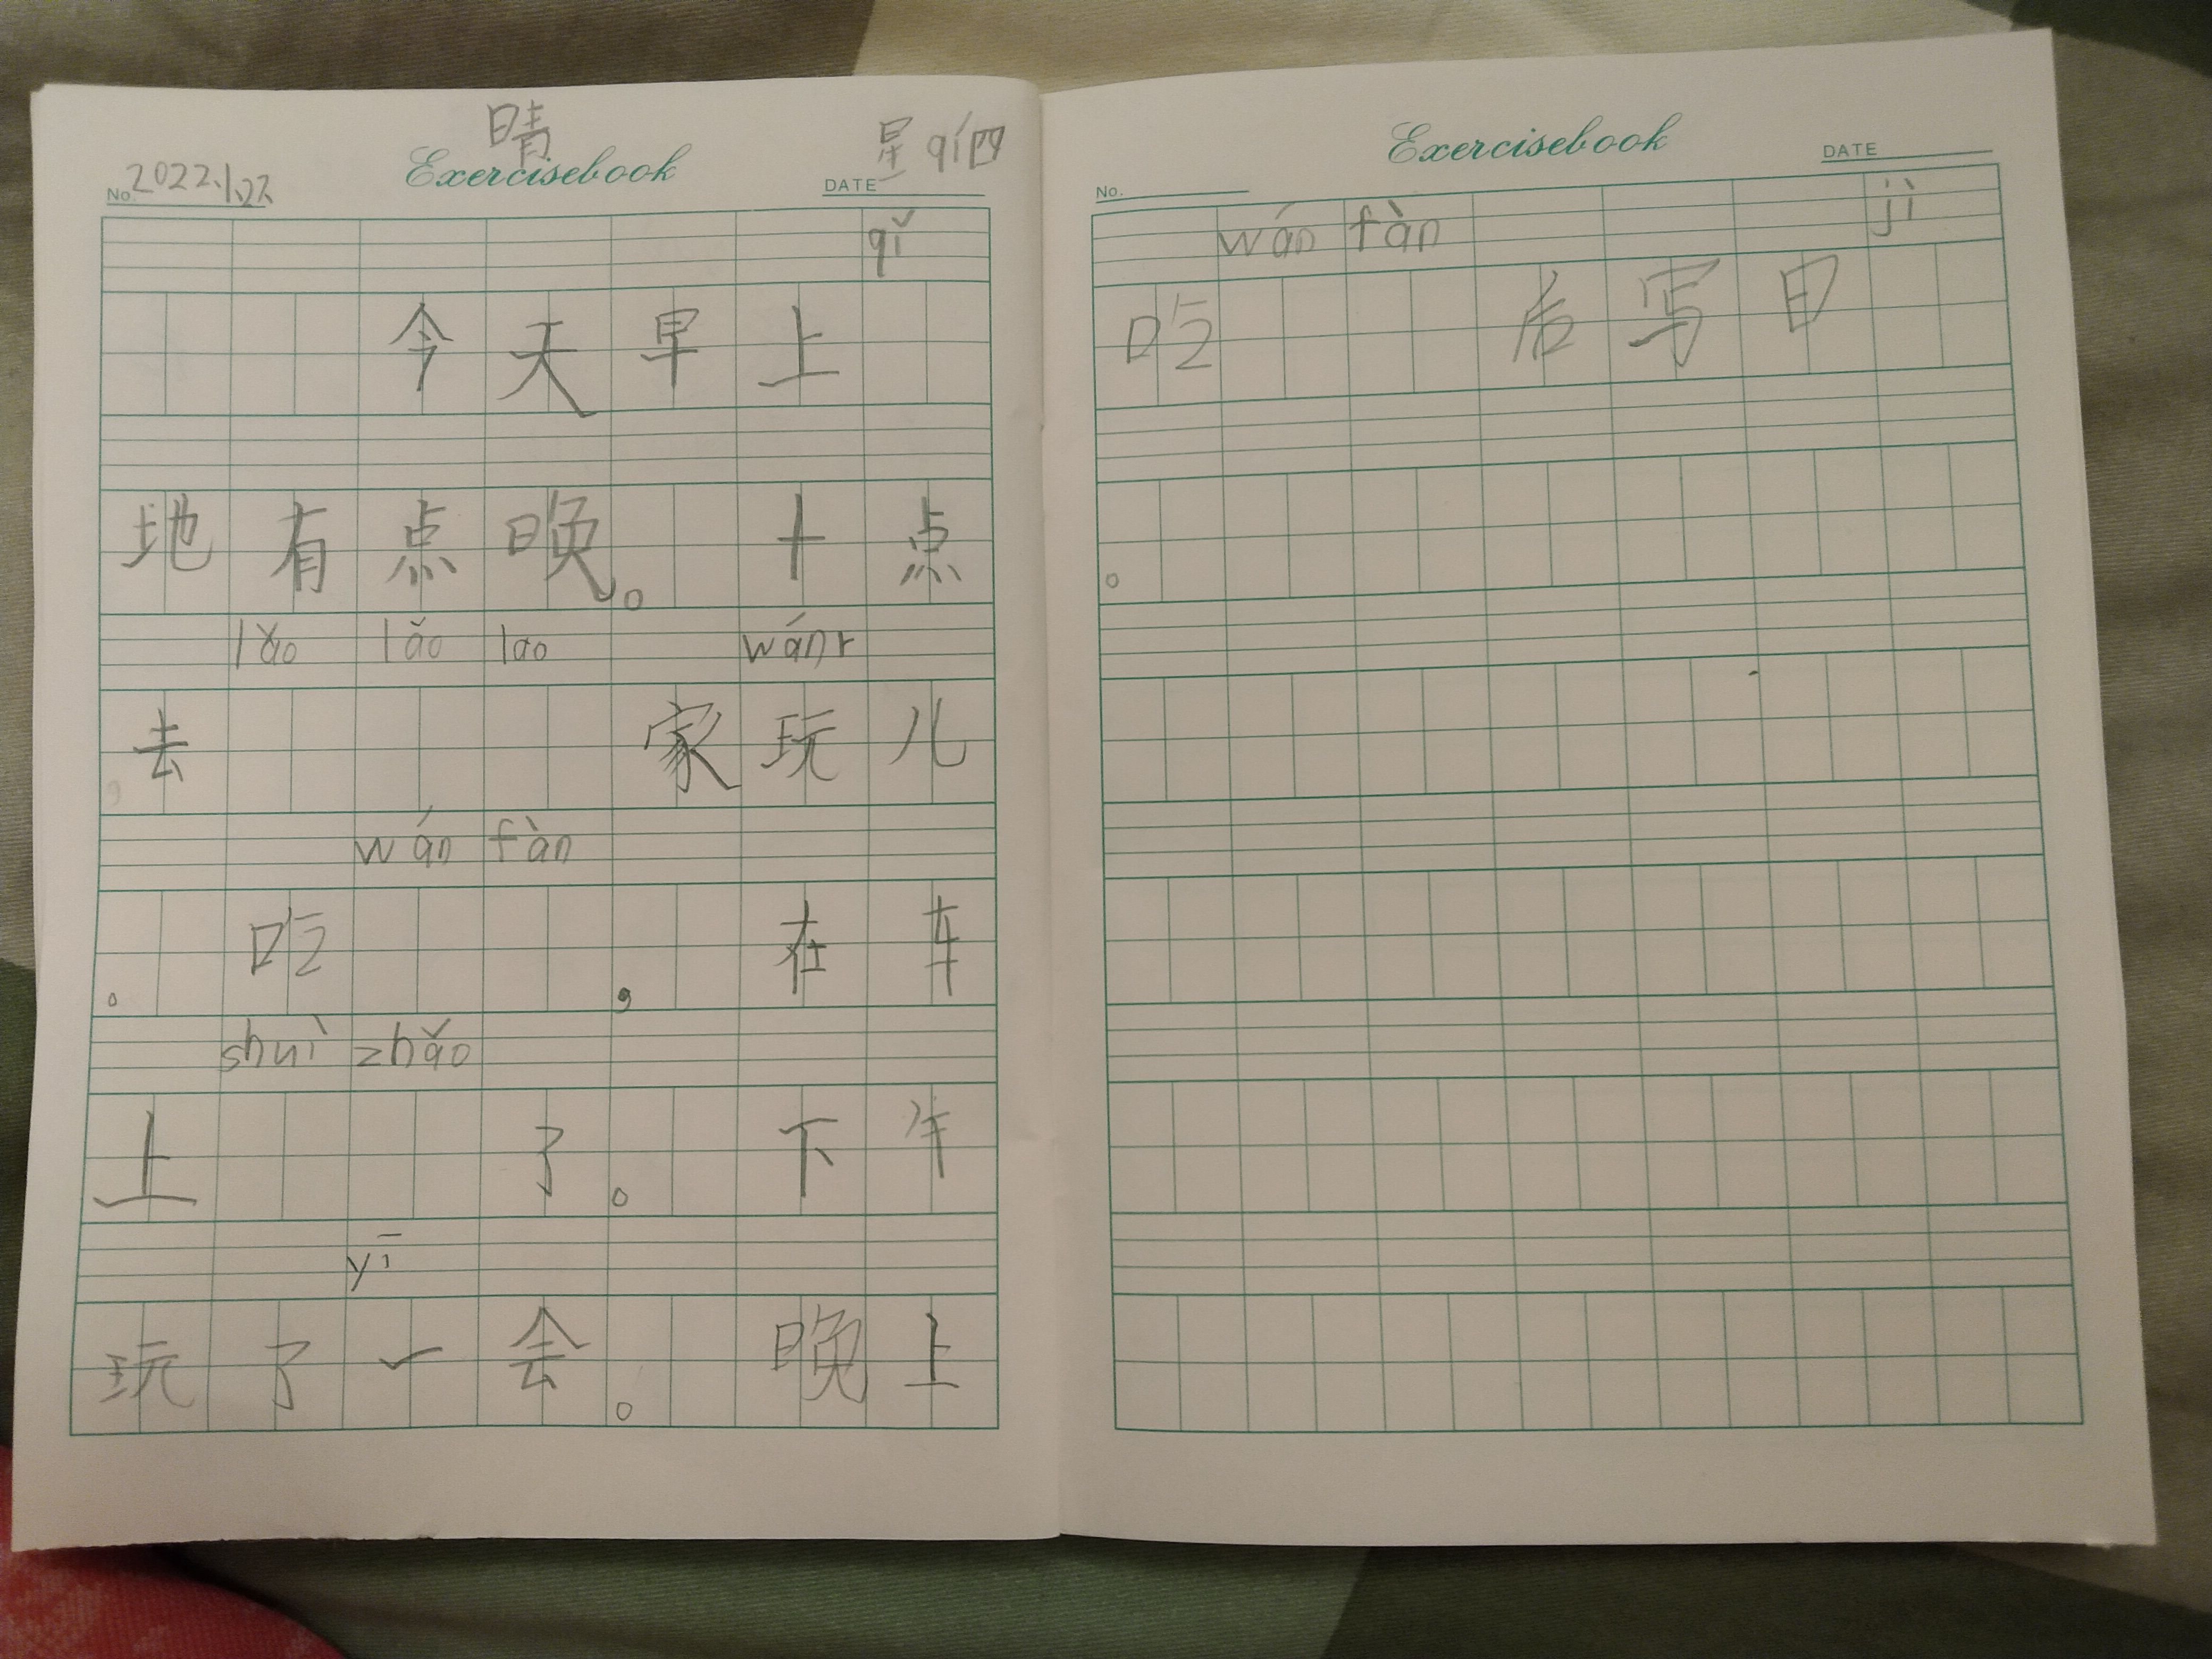 晴
Exercisebook
星qí四
No. 2022.1.27
DATE
qǐ
今天早上
地有点晚。十点
lǎo lǎo lao wánr
去家玩儿
wán fàn
。吃,在车
shuì zhǎo
上了。下午
yī
玩了一会。晚上
Exercisebook
No.
DATE
wán fàn jì
吃后写日
。